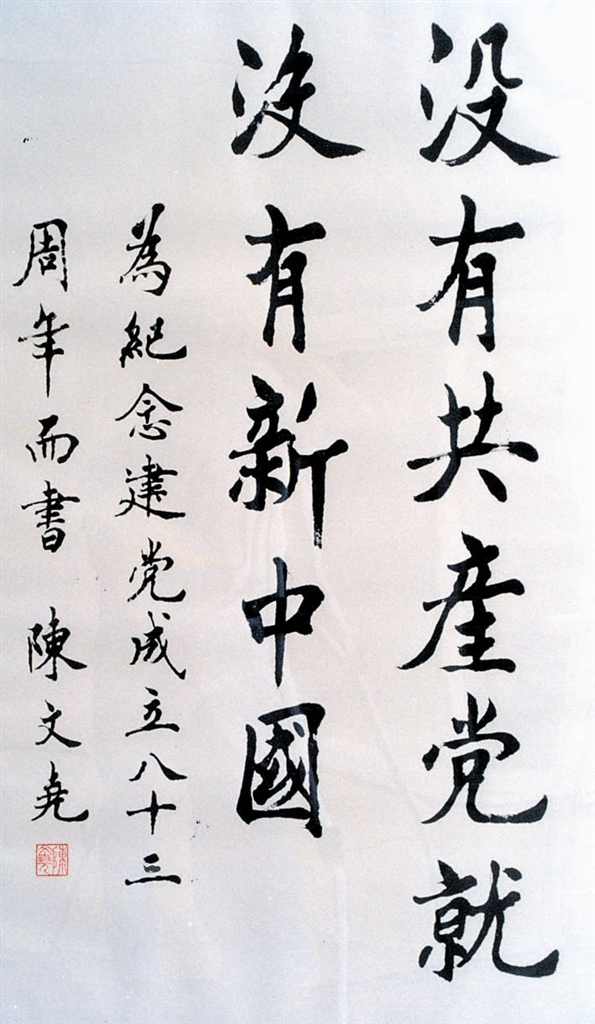 没有共産党就
没有新中國
為紀念建党成立八十三
周年而書 陳文堯